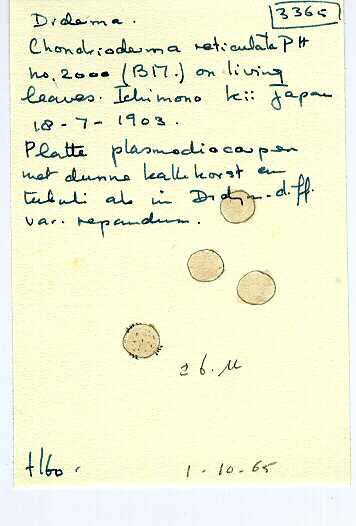 Diderma.
3365
Chondrioderma reticulata PH
no. 2000 (BM.) on living
leaves. Ichimono Kii Japan
18-7-1903.
Platte plasmodiocarpen
met dunne kalkkorst en
tubuli als in Didym. diff.
var. repandum.
± 6. µ
+160.
1-10-65